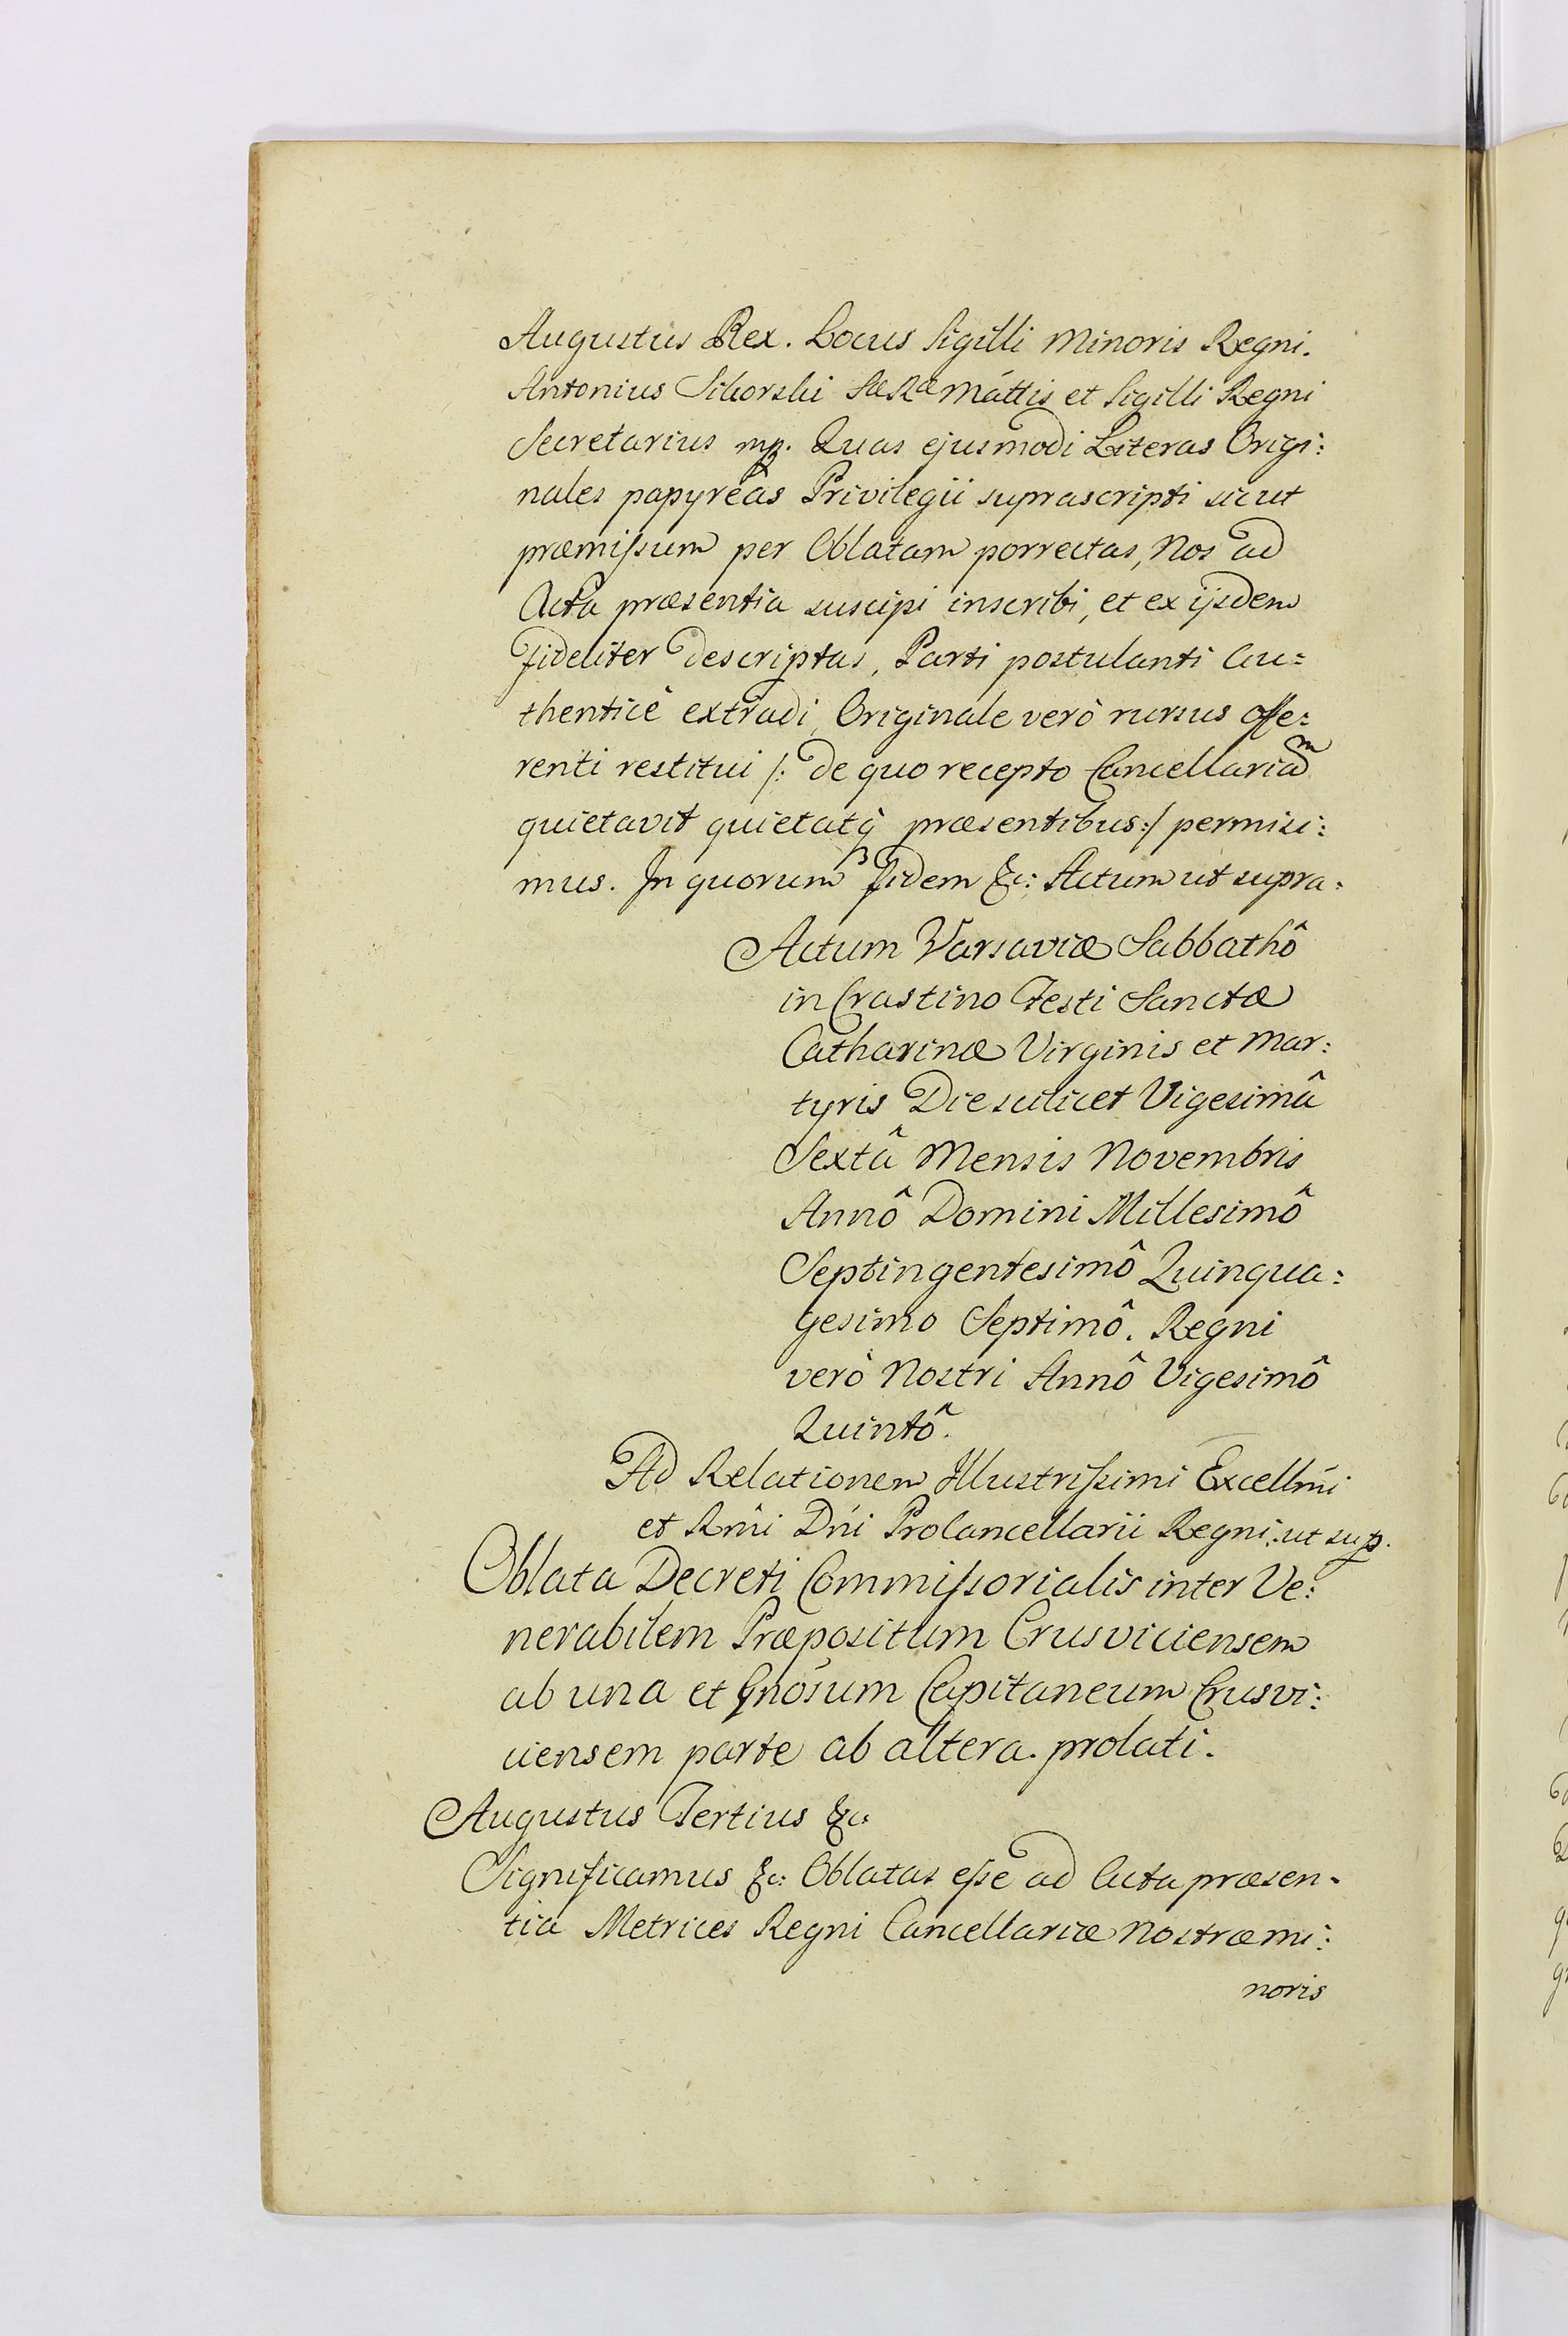 Augustus Rex. Locus Sigilli Minoris Regni.
Antonius Sikorski SæRæMáttis et Sigilli Regni
Secretarius mp. Quas ejusmodi Literas Origi:
nales papyreas Privilegii suprascripti sicut
præmissum per Oblatam porrectas, Nos ad
Acta præsentia suscipi inscribi, et ex ijsdem
fideliter descriptas, Parti postulanti Au:
thenticè extradi, Originale verò rursus offe:
renti restitui /: de quo recepto Cancellariam
quietavit quietatq̀ præsentibus :/ permisi:
mus. In quorum fidem &c: Actum ut supra.
Actum Varsaviæ Sabbathô
in Crastino Festi Sanctæ
Catharinæ Virginis et Mar:
tyris Die scilicet Vigesimâ
Sextâ Mensis Novembris
Annô Domini Millesimô
Septingentesimô Quinqua:
gesimo Septimô. Regni
verò Nostri Annô Vigesimô
Quintô.
Ad Relationem Illustrissimi Excellmi
et Rmi Dni Procancellarii Regni. ut sup.
Oblata Decreti Commissorialis inter Ve:
nerabilem Præpositum Crusviciensem
ab una et Gnosum Capitaneum Crusvi:
ciensem parte ab altera prolati.
Augustus Tertius &c.
Significamus &c: Oblatas esse ad Acta præsen:
tia Metrices Regni Cancellariæ Nostræ mi:
noris